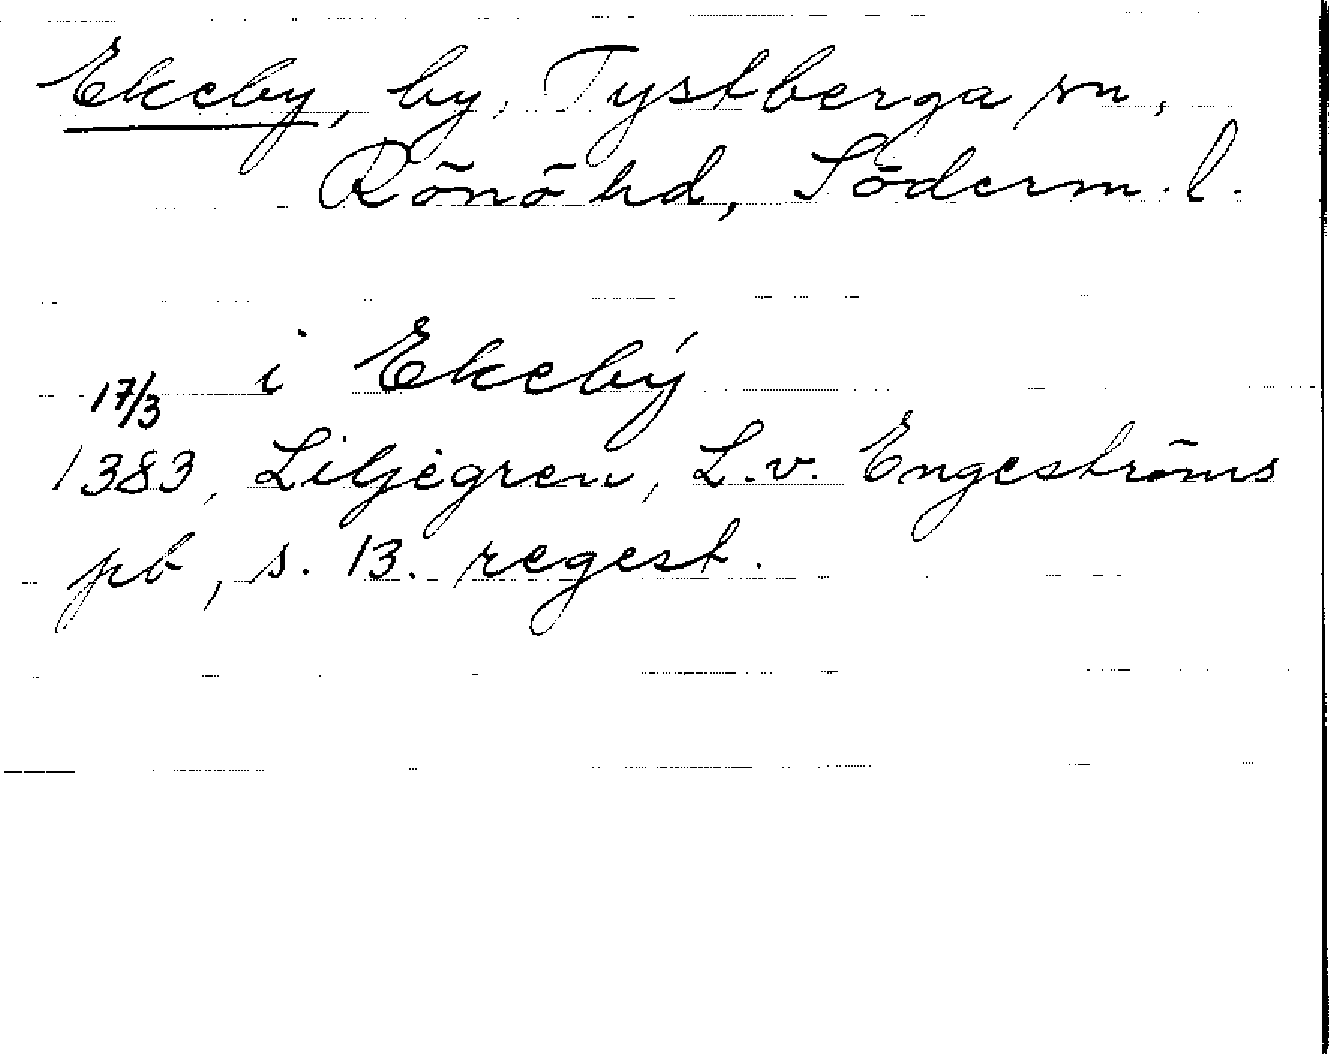 Ekeby, by, Tystberga sn,
Rönö hd, Söderm. l.
i Ekebý
17/3
1383, Liljegren, L. v. Engeströms
pb, s. 13. regest.